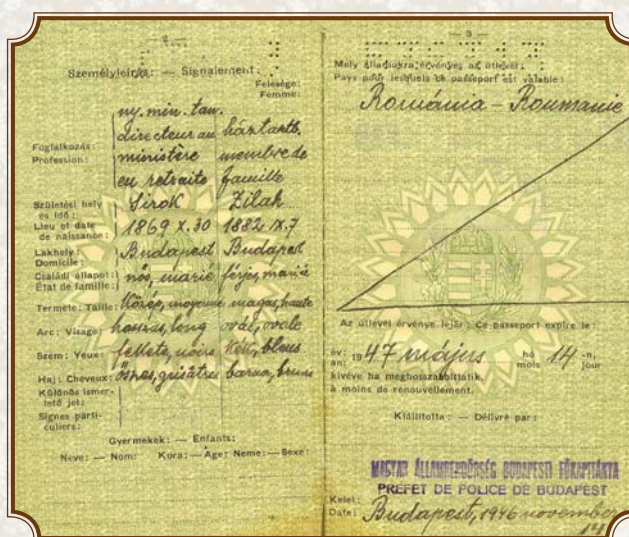 — 2 —
Személyleírás: — Signalement:
Felesége:
Femme:
ny. min. tan.
directeur au háztartb.
Foglalkozás:
Profession:
ministère membre de
en retraite famille
Születési hely
és idő:
Lieu et date
de naissance:
Sirok Zilah
1869 X. 30 1882 IX. 7
Lakhely:
Domicile:
Budapest Budapest
Családi állapot:
État de famille:
nős, marié férjes, mariée
Termete: Taille:
közép, moyenne magas, haute
Arc: Visage:
hosszas, long ovál, ovale
Szem: Yeux:
fekete, noirs kék, bleus
Haj: Cheveux:
őszes, grisâtres barna, bruns
Különös ismer-
tető jel:
Signes parti-
culiers:
Gyermekek: — Enfants:
Neve: — Nom: Kora: — Age: Neme: — Sexe:
— 3 —
Mely államokra érvényes az útlevél:
Pays pour lesquels ce passeport est valable:
Románia – Roumanie
Az útlevél érvénye lejár: Ce passeport expire le:
év:
an:
1947 május hó
mois 14 -n,
jour
kivéve ha meghosszabbíttatik.
à moins de renouvellement.
Kiállította: — Délivré par:
MAGYAR ÁLLAMRENDŐRSÉG BUDAPESTI FŐKAPITÁNYA
PREFET DE POLICE DE BUDAPEST
Kelet:
Date:
Budapest, 1946 november
14